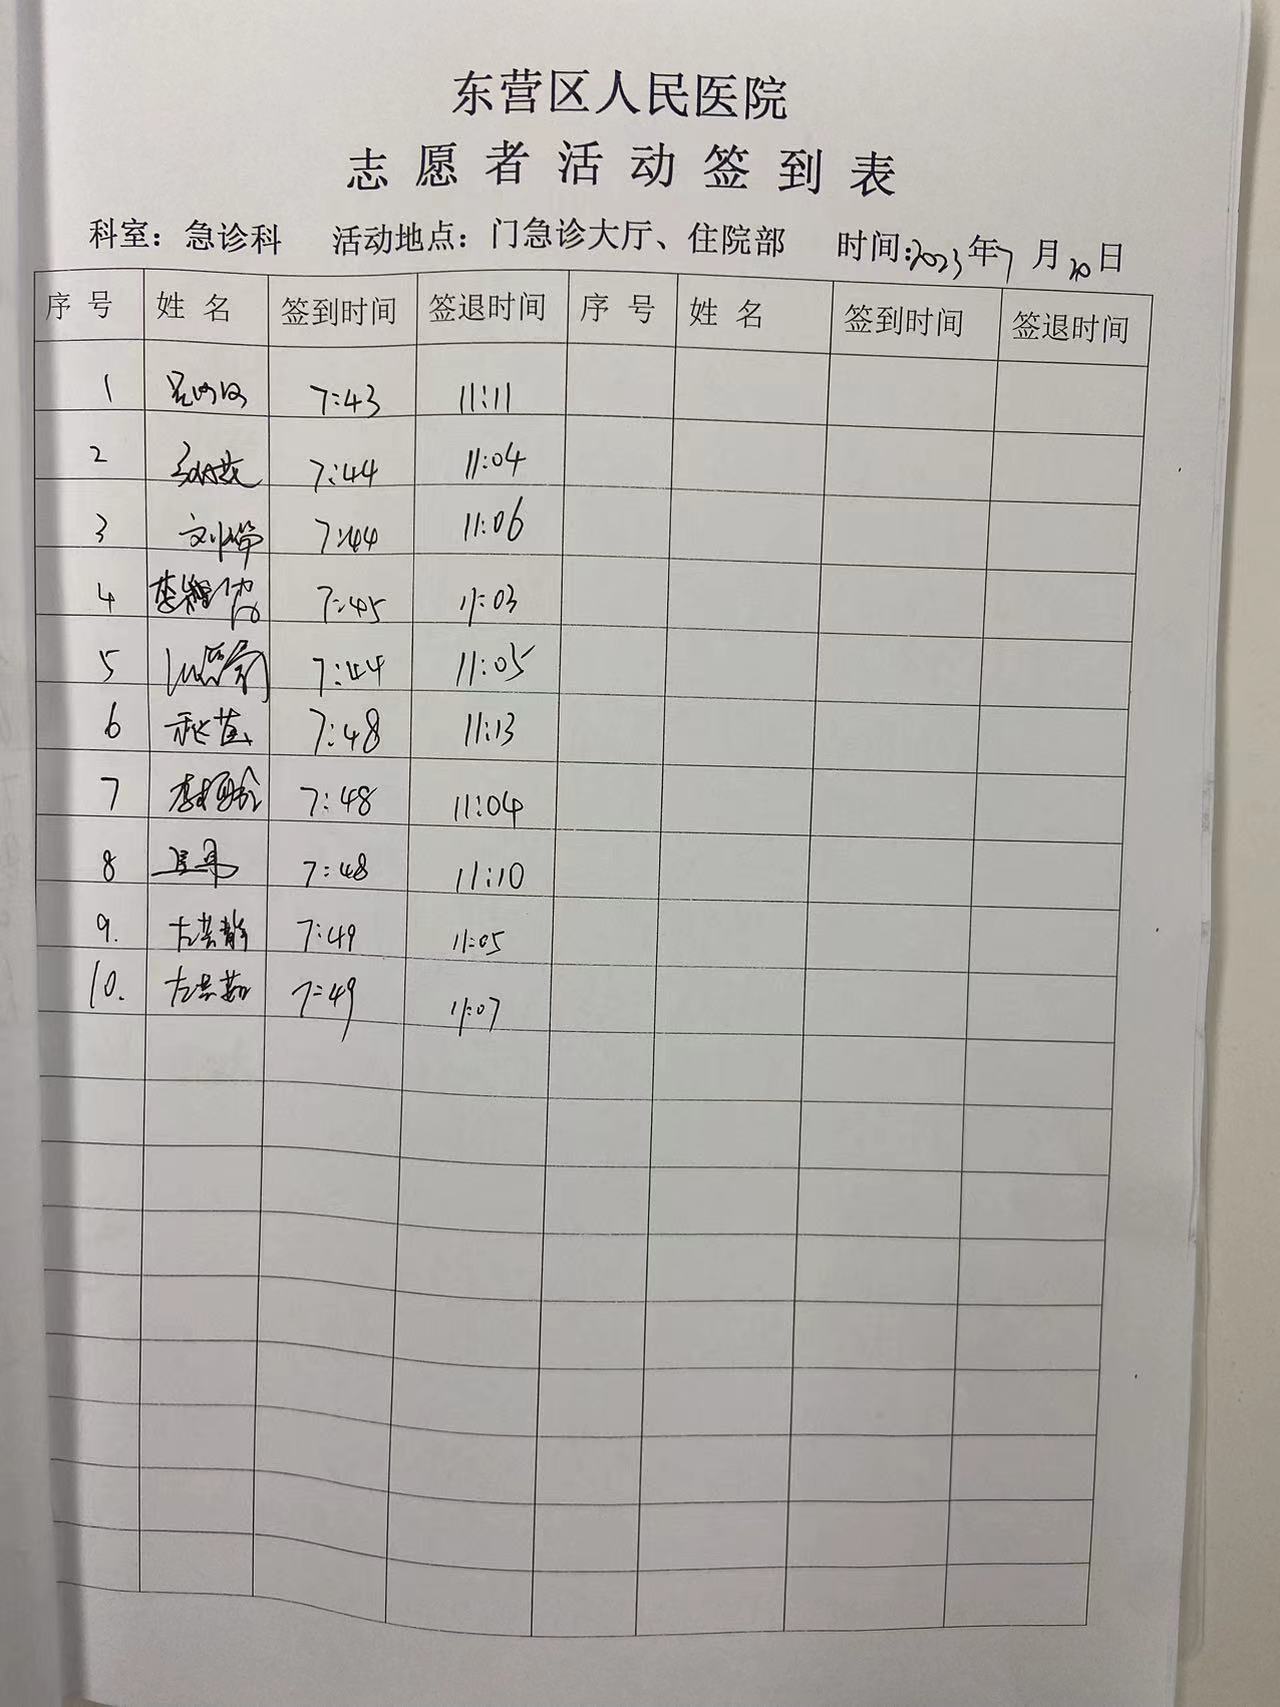 东营区人民医院
志愿者活动签到表
科室：急诊科 活动地点：门急诊大厅、住院部 时间：2023年7月20日
序号 姓名 签到时间 签退时间 序号 姓名 签到时间 签退时间
1 7:43 11:11
2 7:44 11:04
3 7:44 11:06
4 7:45 11:03
5 7:44 11:05
6 7:48 11:13
7 7:48 11:04
8 7:48 11:10
9. 7:49 11:05
10. 7:49 11:07